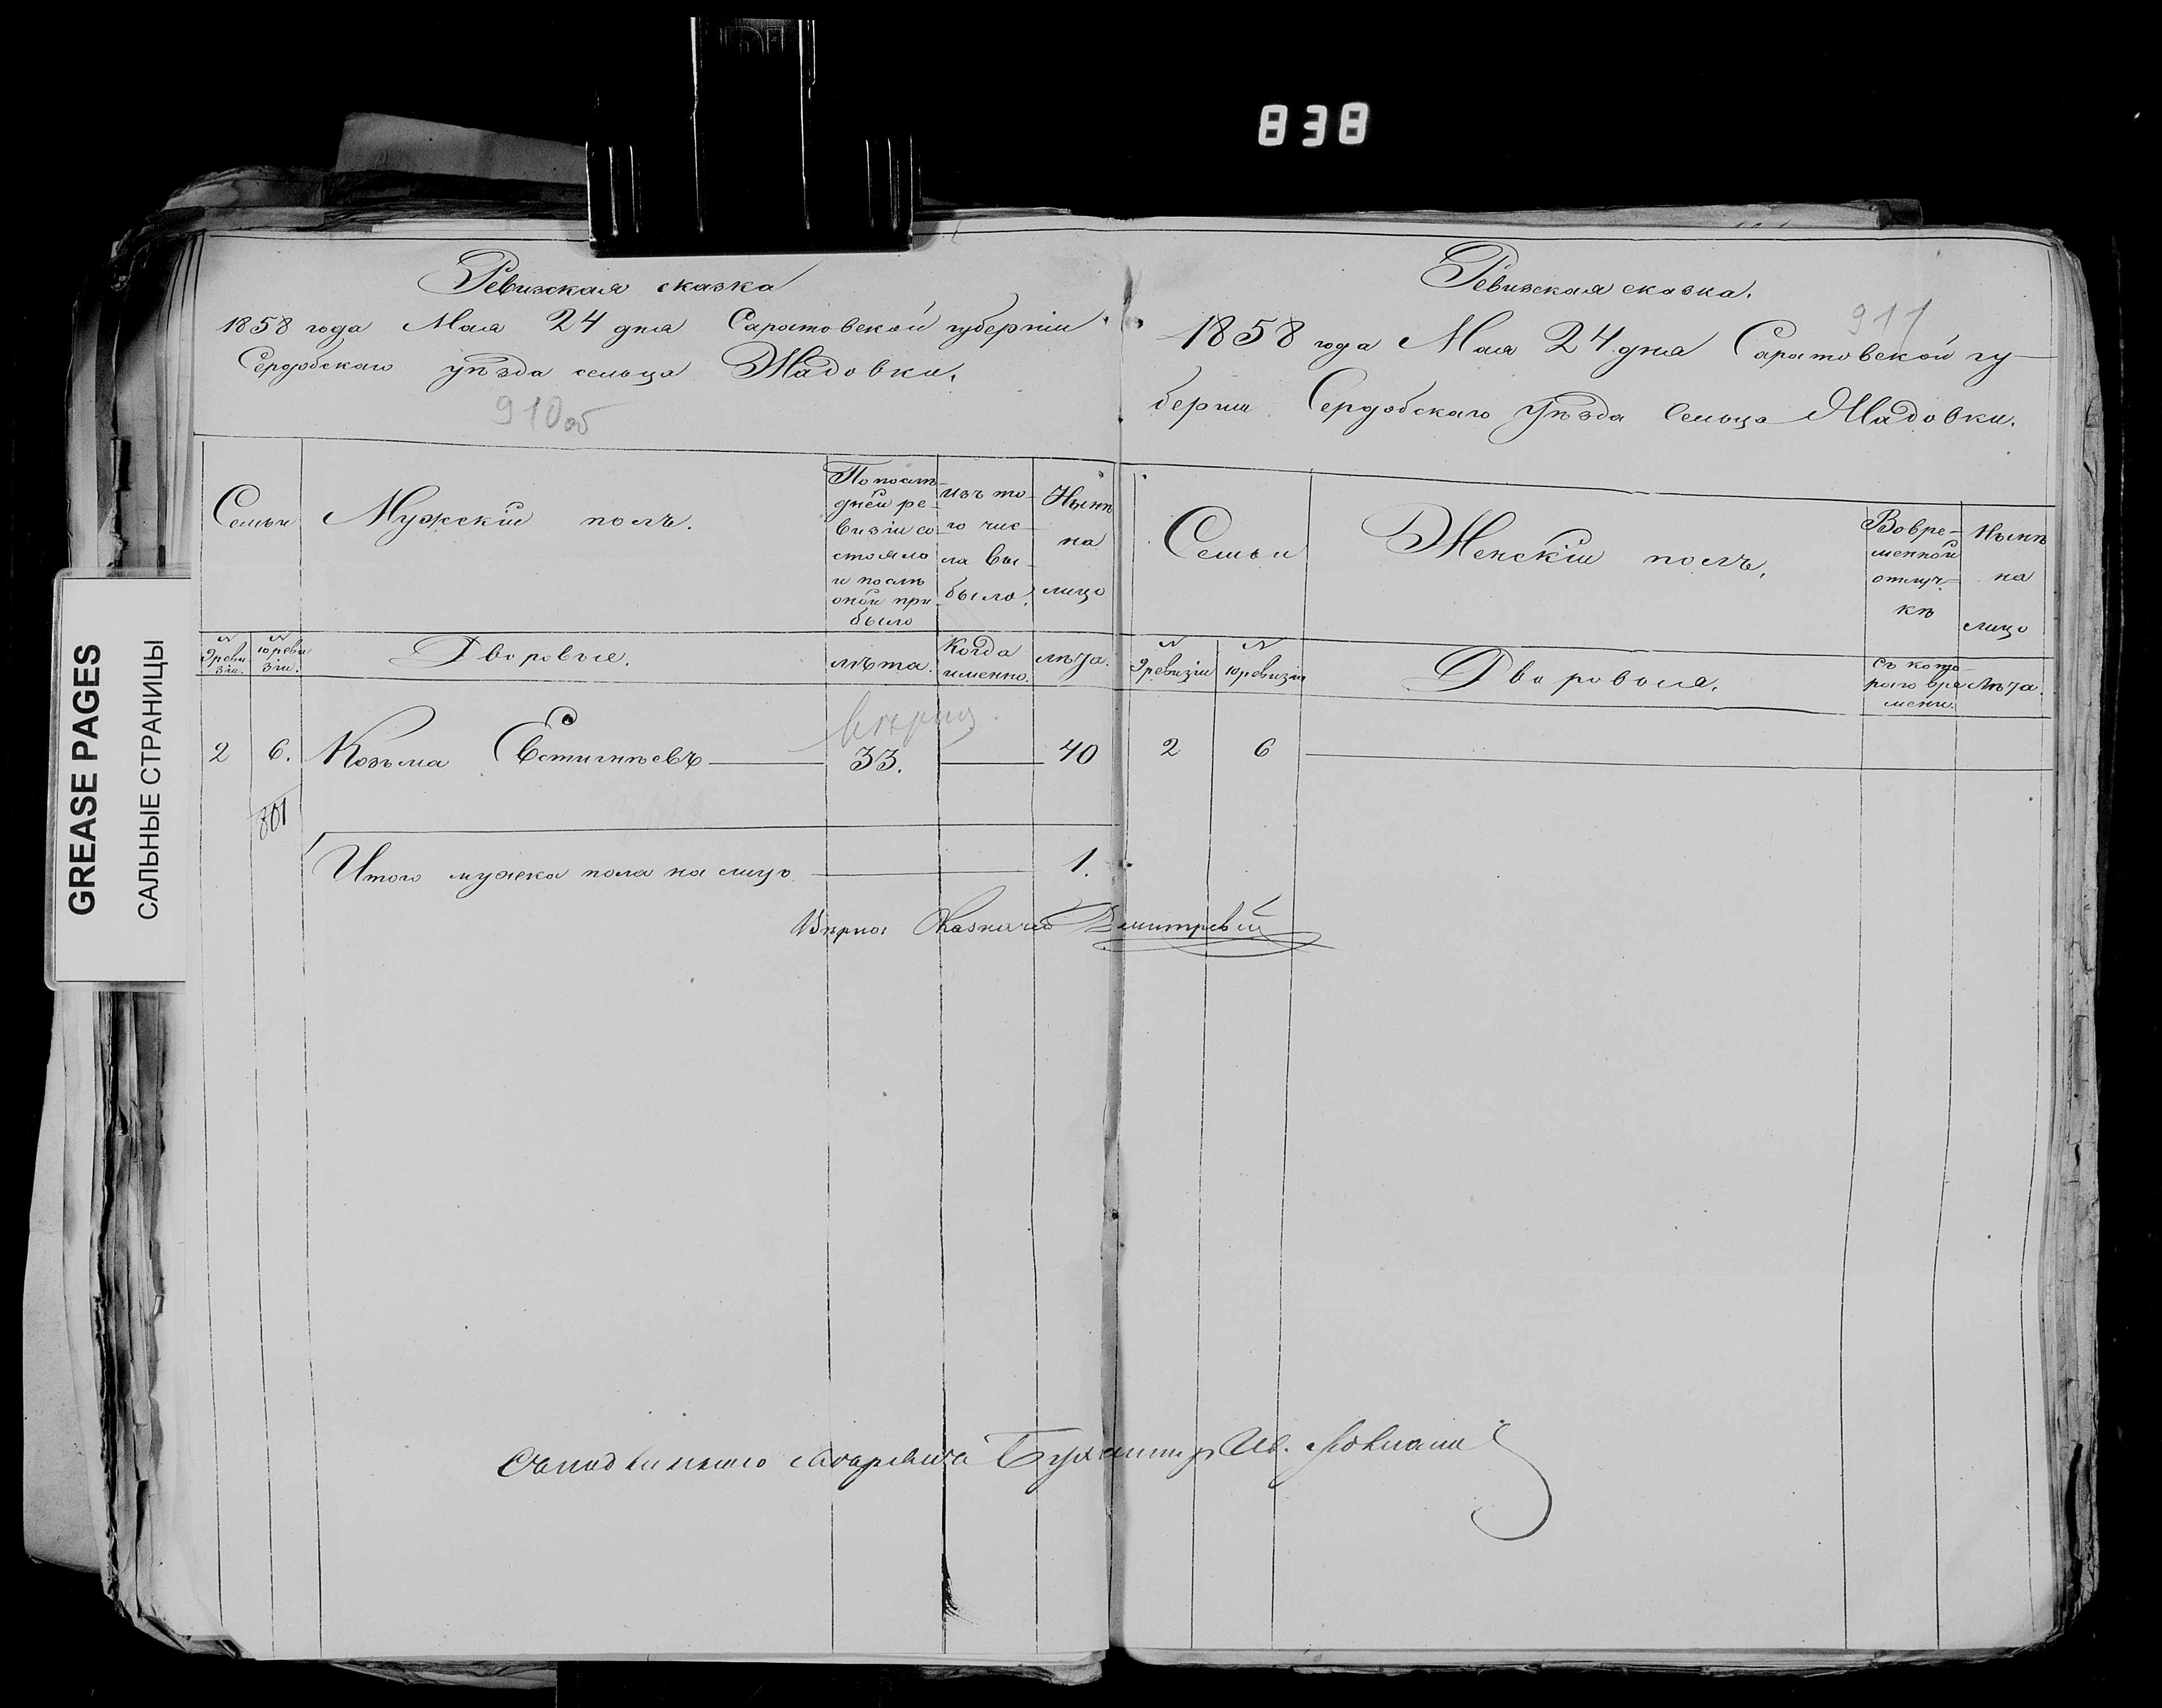 838
GREASE PAGES
САЛЬНЫЕ СТРАНИЦЫ
Ревизская сказка
1858 года Мая 24 дня Саратовской губернiи
Сердобскаго уѣзда сельца Жадовки.
910об
Семьи
Мужескiй полъ.
По послѣ-
дней ре-
визiи со-
стояло
и послѣ
оной при
было
изъ то-
го чис-
ла вы-
было.
Нынѣ
на
лицо
№ 9 реви зiи.
№ 10 реви зiи.
Дворовые.
лѣта.
Когда
именно.
лѣта.
вѣрно
2 6. Козьма Евстигнѣевъ 33. 40
801
Итого мужска пола на лицо 1.
Вѣрно: Казначей
Ревизская сказка.
911
1858 года Мая 24 дня Саратовской гу-
бернiи Сердобскаго Уѣзда Сельца Жадовки.
Семьи
Женскiй полъ.
Во вре-
менной
отлуч-
кѣ
Нынѣ
на
лицо
№ 9 ревизiи
№ 10 ревизiи
Двороваля.
съ кото-
раго вре
мени.
Лѣта.
2 6
Бухгалтер Ив.